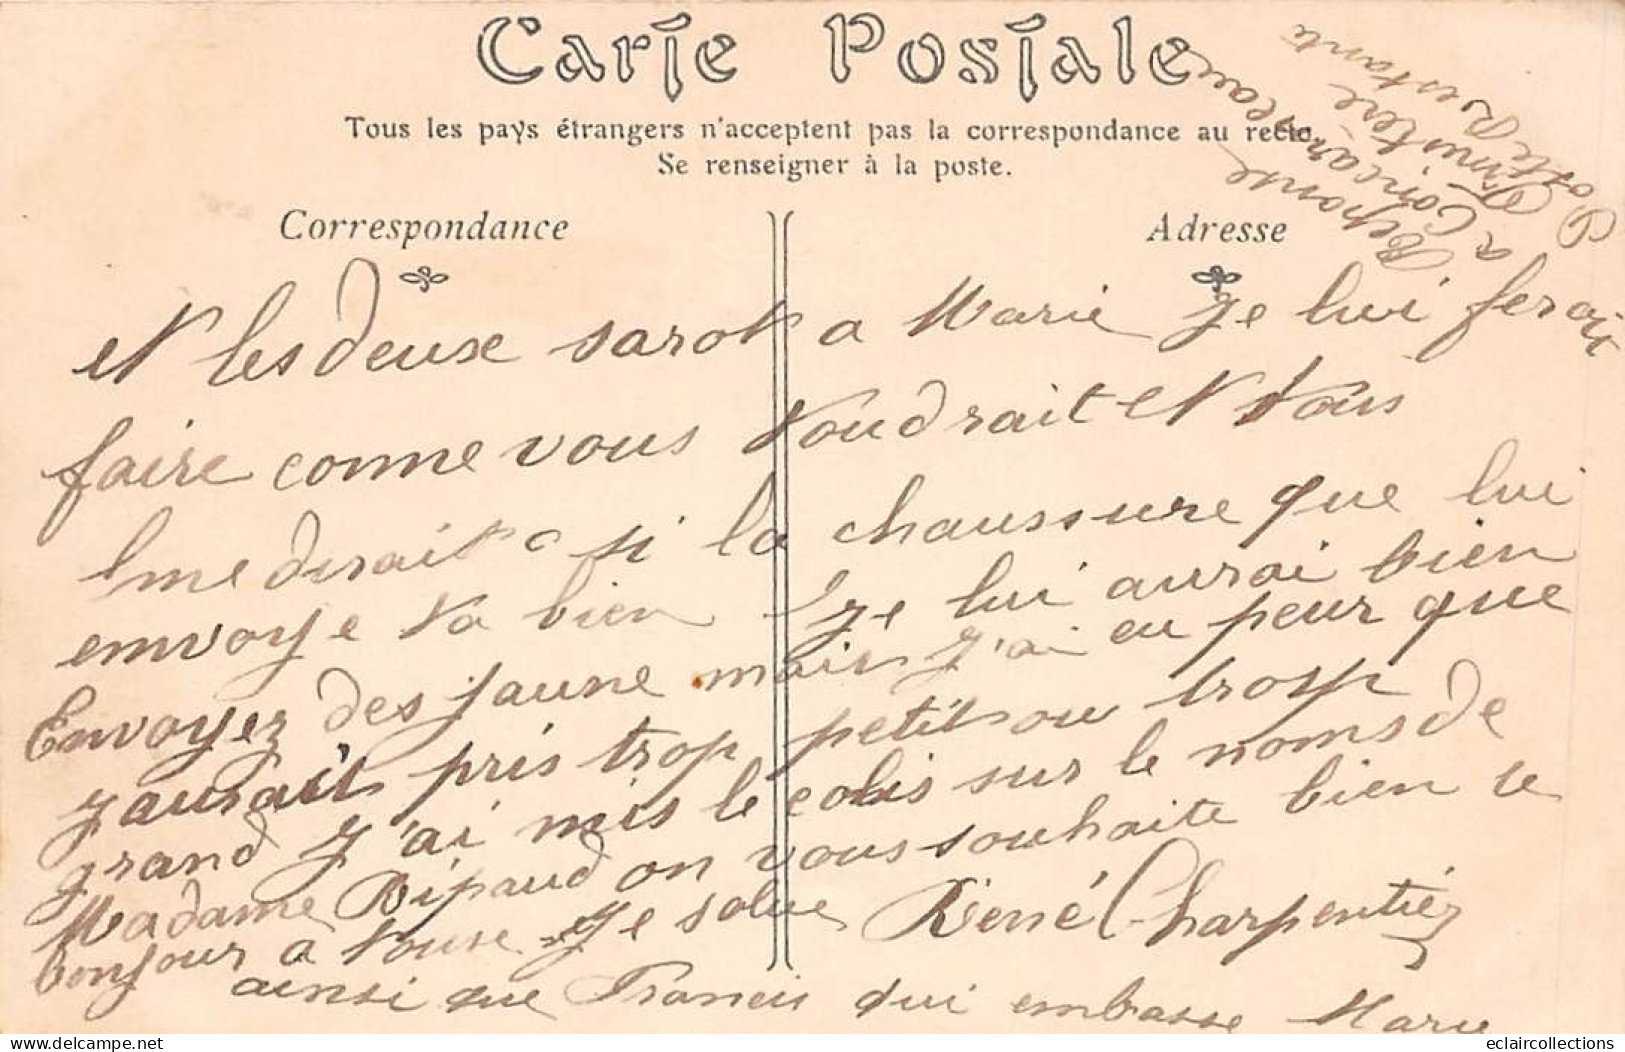 Carte Postale
Tous les pays étrangers n'acceptent pas la correspondance au recto.
Se renseigner à la poste.
Reponse
a Concarneau
Finistere
Poste Restante
Correspondance
Adresse
et les deuxe sarot a Marie je lui ferais
faire conme vous voudrait et vous
me dirait si la chaussure que lui
envoye va bien je lui aurai bien
Envoyez des jaune mais j'ai eu peur que
j'aurait pris trop petit ou trosp
grand j'ai mis le colis sur le noms de
Madame Bipaud on vous souhaite bien le
bonjour à touse Je salue René Charpentier
ainsi que Francis qui embasse Marie
delcampe.net
eclaircollections